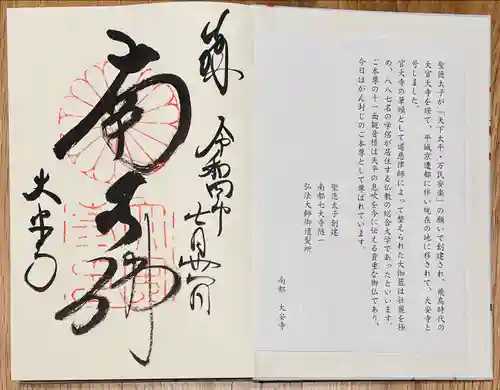 聖徳太子が「天下太平・万民安楽」の願いで創建され、飛鳥時代の
大官大寺を経て、平城京遷都に伴い現在の地に移されて、大安寺と
号しました。
官大寺の筆頭として道慈律師によって整えられた大伽藍は壮麗を極
め、八八七名の学侶が居住する仏教の総合大学であったといいます。
ご本尊の十一面観音様は天平の息吹を今に伝える貴重な御仏であり、
今日はがん封じのご本尊として尊ばれています。
聖徳太子創建
南都七大寺随一
弘法大師御遺聖所
南都 大安寺
令和四年七月
大安寺